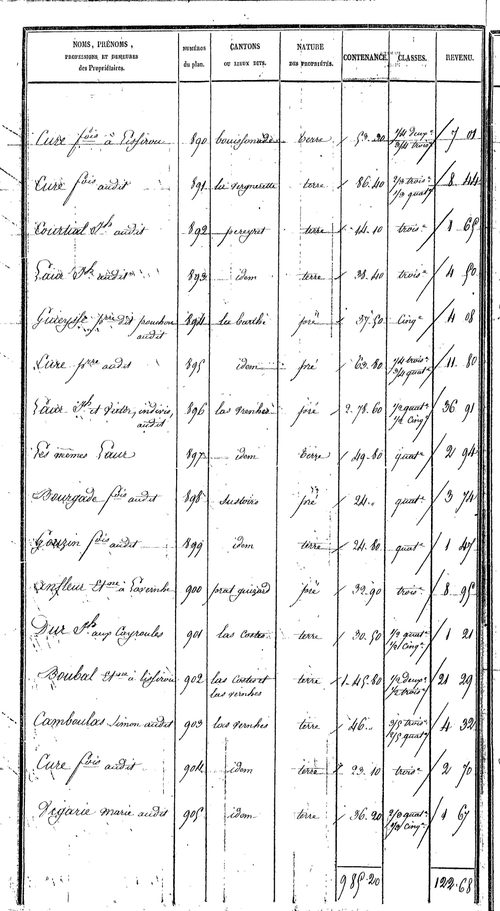 NOMS, PRÉNOMS, PROFESSIONS, ET DEMEURES des Propriétaires. NUMÉROS du plan. CANTONS OU LIEUX DITS. NATURE DES PROPRIÉTÉS. CONTENANCE. CLASSES. REVENU.
Cure fois à 890 terre 53.20 1/4 deux.e 3/4 trois.e 7 01
Cure fois audit 891 la vergnerette terre 86.40 2/3 trois.e 1/3 quat.e 8 44
audit 892 pereyret terre 14.10 trois.e 1 65
audit 893 idem terre 38.40 trois.e 4 50
pre dit audit 894 la barthe pré 37.50 Cinq.e 4 08
Cure pierre audit 895 idem pré 63.80 1/4 trois.e 3/4 quat.e 11 80
et Victor, indivis, audit 896 las vernhes pré 2.78.60 1/2 quat.e 1/2 Cinq.e 36 91
Les mêmes 897 idem terre 49.80 quat.e 2 94
Bourgade fois audit 898 pré 24.. quat.e 3 74
Gauzin fois audit 899 idem terre 24.80 quat.e 1 47
à Lavernhe 900 prat guizard pré 32.90 trois.e 8 95
aux Cayroules 901 las Costes terre 30.50 1/2 quat.e 1/2 Cinq.e 1 21
Boubal à 902 las Costes et las vernhes terre 1.45.80 1/2 deux.e 1/2 trois.e 21 29
Camboulas Simon audit 903 las vernhes terre 46.. 3/5 trois.e 2/5 quat.e 4 32
Cure fois audit 904 idem terre 23.10 trois.e 2 70
Degarie marie audit 905 idem terre 36.20 quat.e Cinq.e 1 67
985.20 122.68